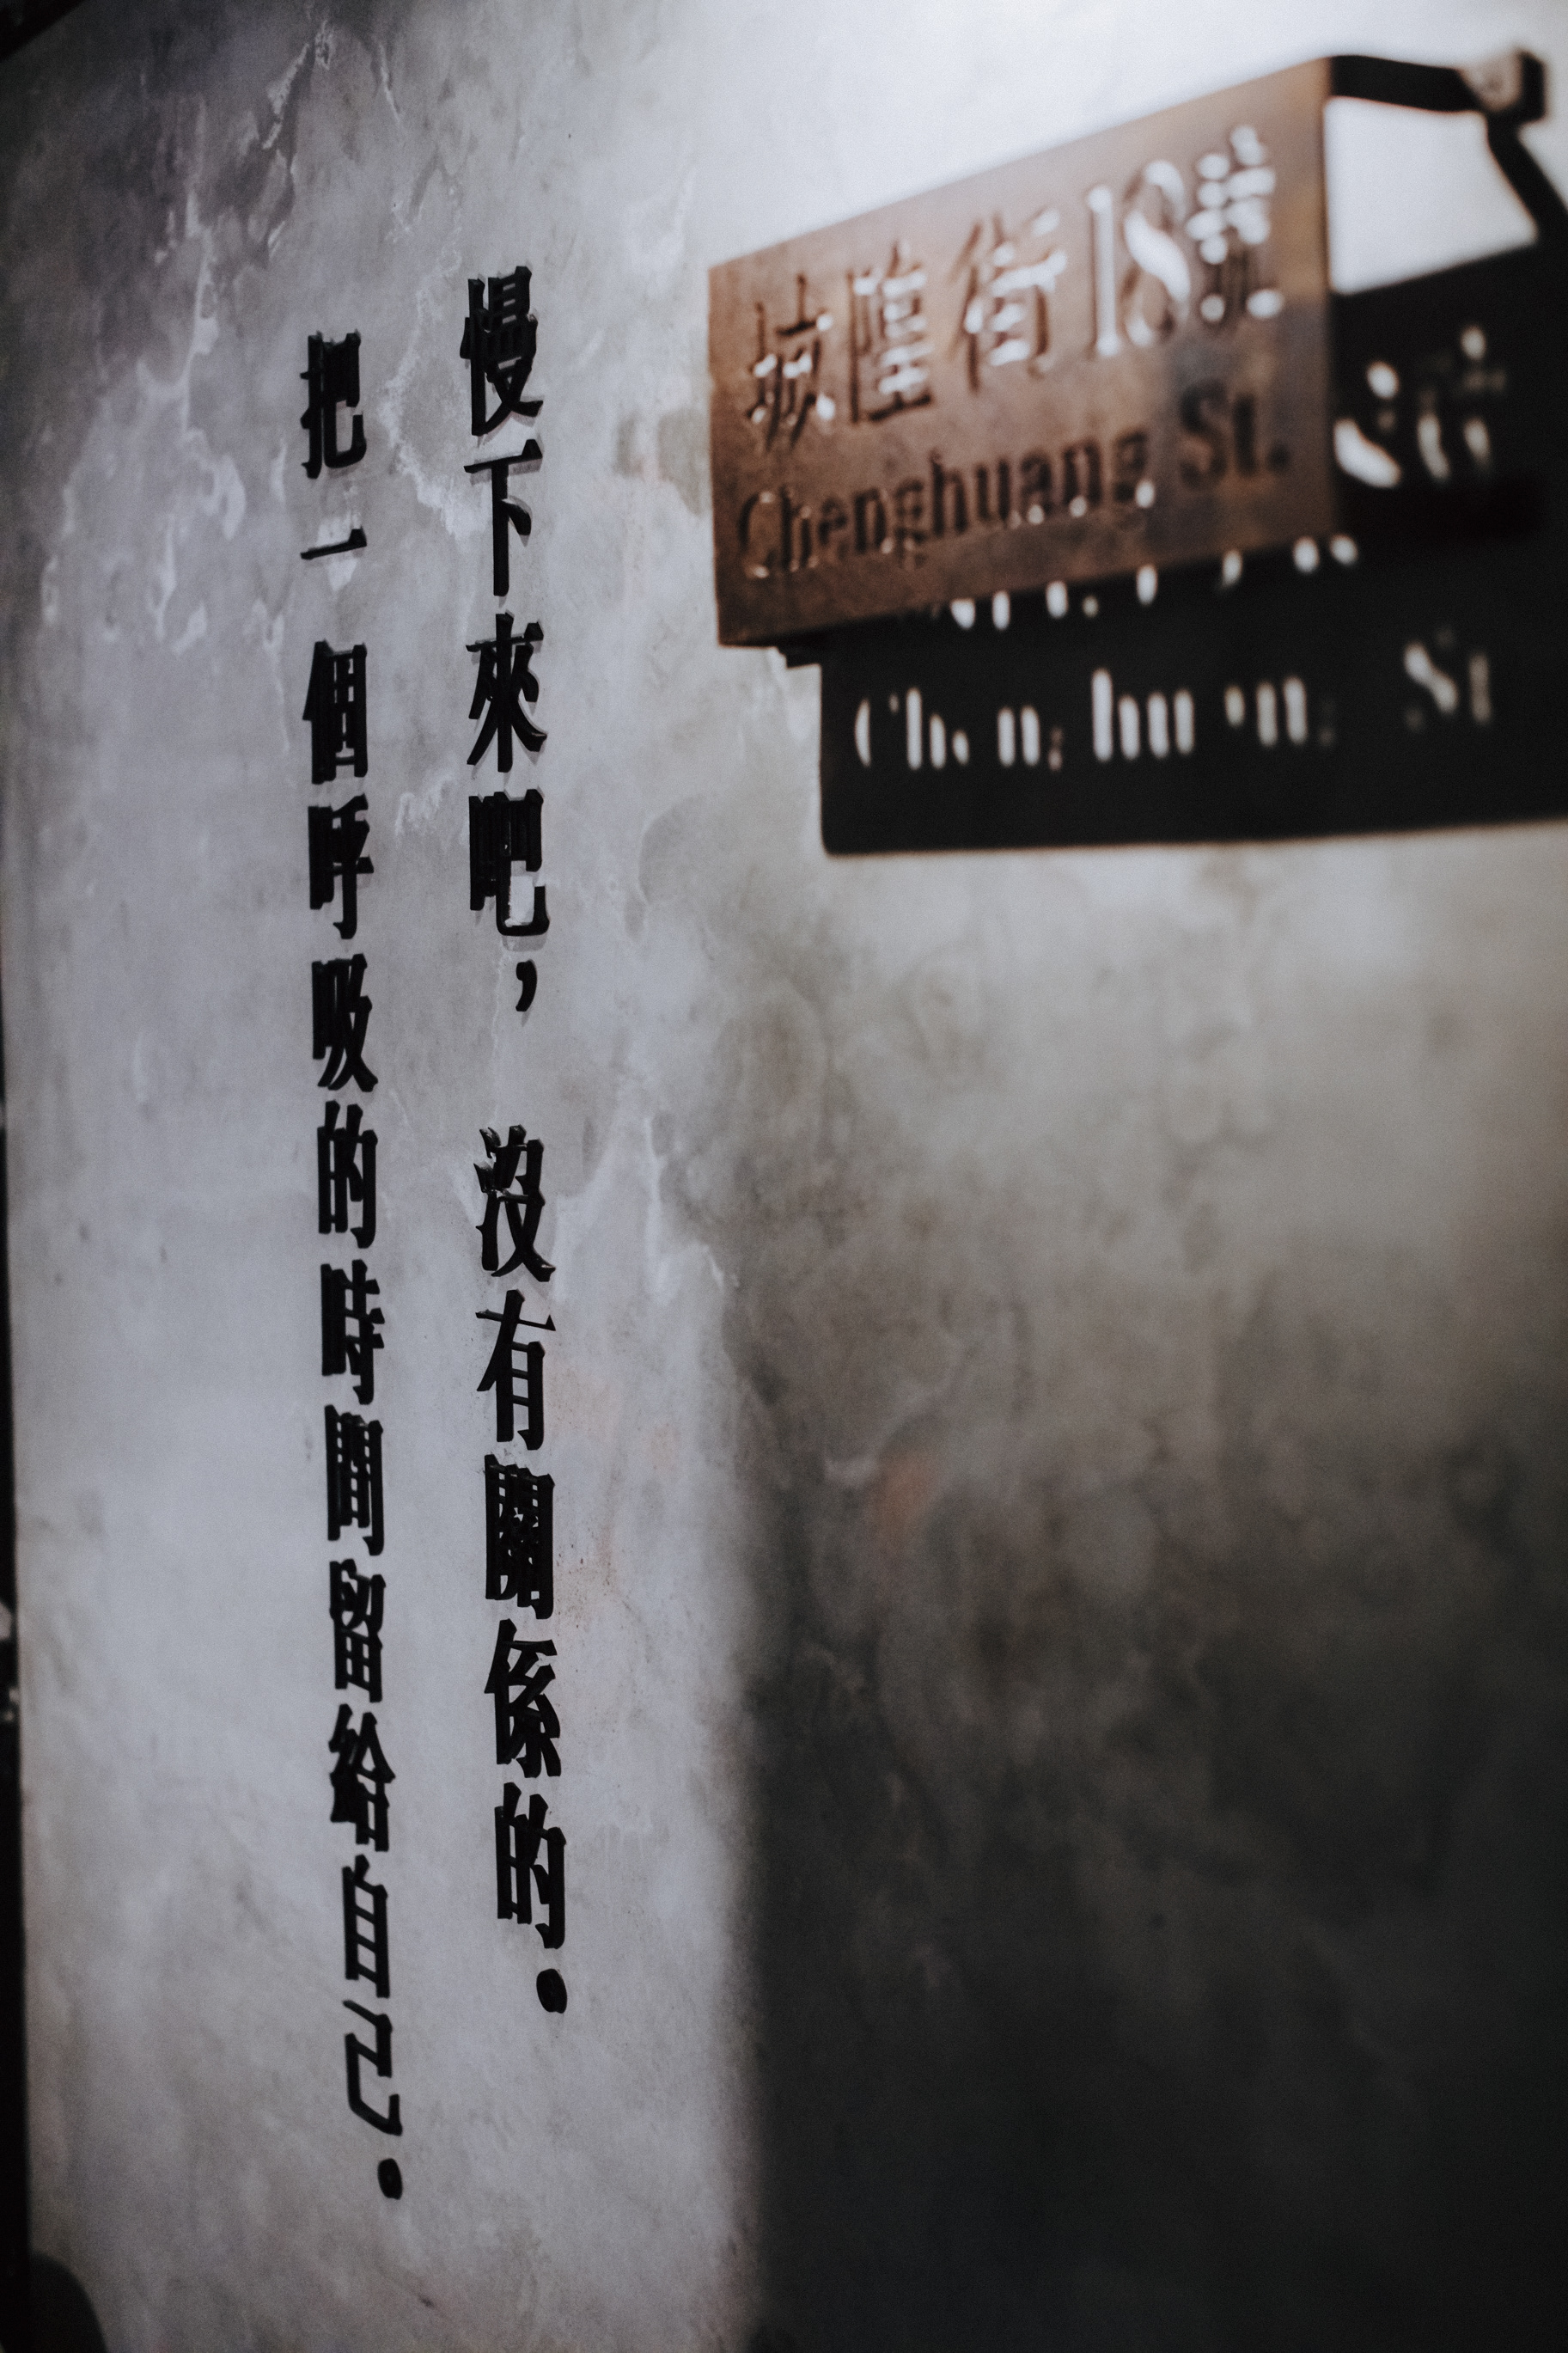 城隍街18號
Chenghuang St.
慢下來吧，沒有關係的。
把一個呼吸的時間留給自己。